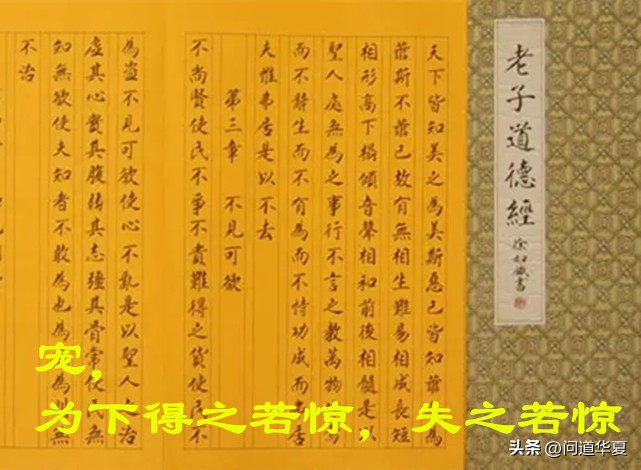 老子道德經
徐幼儀書
天下皆知美之為美斯惡已皆知譱之為
譱斯不譱已故有無相生難易相成長短
相形高下相傾音聲相和前後相隨是
聖人處無為之事行不言之教萬物
而不辭生而不有為而不恃功成而居
夫惟弗居是以不去
第三章 不見可欲
不尚賢使民不爭不貴難得之貨使民不
為盜不見可欲使心不亂是以聖人之治
虛其心實其腹弱其志彊其骨常使無
知無欲使夫知者不敢為也為無
不治
宠，
为下得之若惊，失之若惊
头条 @问道华夏